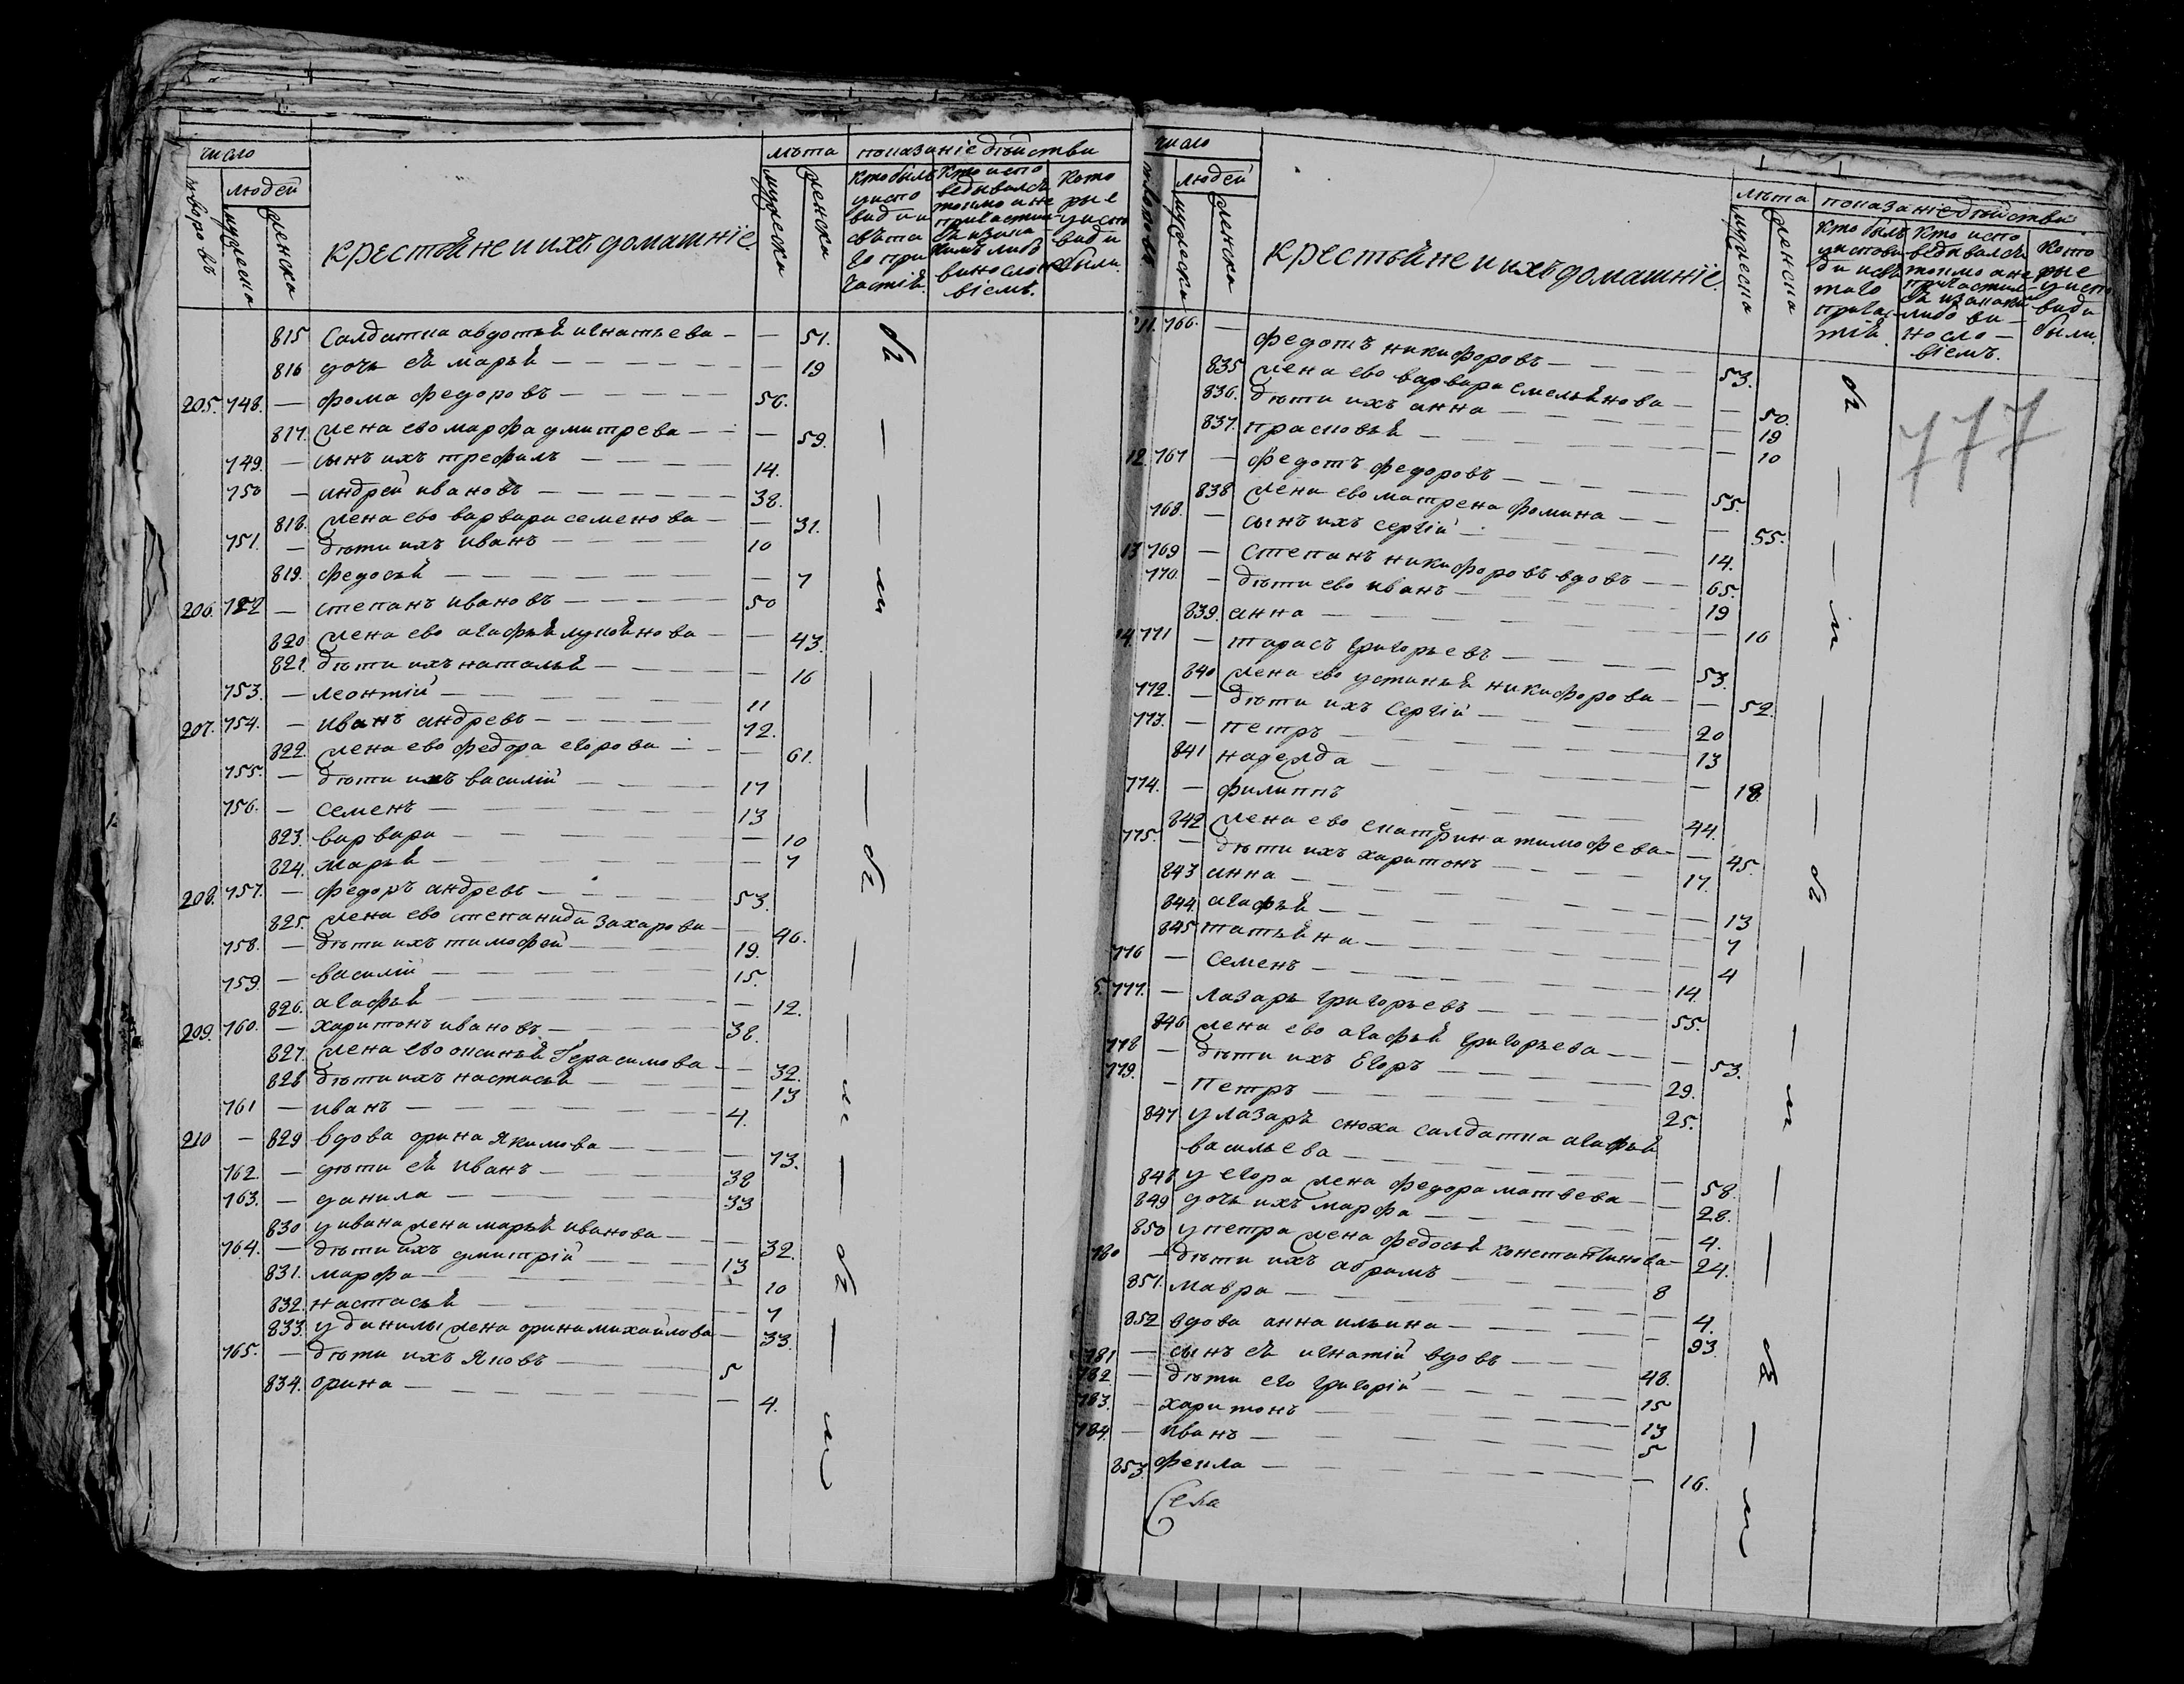 число
лѣта показание дѣйстви
дворовъ
людей
мужеска
женска
Крестьяне и ихъ домашние
мужеска
женска
Кто былъ у испо види и свѣта го при частия.
Кто испо ведывался токмо а не причастил ся и зака кимъ либо вино сло виемъ.
Кото рые у испо види не были.
815 Салдатка авдотья игнатьева — — 51. бы
816 дочь ея марья — — 19
205. 748. — фома федоровъ — 56.
817. жена ево марфа дмитрева — — 59.
749. — сынъ ихъ трефилъ — 14.
750 — андрей ивановъ — 38.
818. жена ево варвара семенова — — 31.
751. — дѣти ихъ иванъ — 10
819. федосья — — 7
206. 752 — степанъ ивановъ — 50
820 жена ево агафья лукоянова — — 43.
821. дѣти ихъ наталья — — 16
753. — леонтий — 11
207. 754. — иванъ андревъ — 72.
822. жена ево федора егорова — — 61.
755. — дѣти ихъ василий — 17
756. — семенъ — 13
823. варвара — — 10
824. марья — — 7
208. 757. — федоръ андревъ — 53.
825. жена ево степанида захарова — — 46.
758. — дѣти ихъ тимофей — 19.
759. — василий — 15.
826. агафья — — 12.
209. 760. — харитонъ ивановъ — 38.
827. жена ево оксинья Герасимова — — 32.
828 дѣти ихъ настасья — — 13
761 — иванъ — 4.
210 — 829 вдова орина Якимова — — 73.
762. — дѣти ея иванъ — 38
763. — данила — 33
830 у ивана жена марья иванова — — 32.
764. — дѣти ихъ дмитрий — 13
831. марфа — — 10
832. настасья — — 7
833. у данилы жена орина михайлова — 33.
765. — дѣти ихъ Яковъ — 5
834. орина — — 4.
число
лѣта показание дѣйстви
дворовъ
людей
мужеска
женска
Крестьяне и ихъ домашние.
мужеска
женска
Кто былъ у испови ди и свя таго причас тия.
Кто испо ведывался токмо а не причастил ся и за каки либо ви но сло виемъ.
Кото рые у испо види были.
211. 766. — федотъ никифоровъ — 53. бы
777
835 жена ево варвара емельянова — — 50.
836. дѣти ихъ анна — — 19
837. прасковья — — 10
12. 767 — федотъ федоровъ — 55.
838 жена ево матрена фомина — — 55.
768. — сынъ ихъ сергий — 14.
13 769 — степанъ никифоровъ вдовъ — 65.
770. — дѣти ево иванъ — 19
839. анна — — 16
14. 771 — тарасъ григорьевъ — 53.
840 жена ево устинья никифорова — — 52.
772. — дѣти ихъ Сергий — 20
773. — петръ — 13
841 надежда — — 18.
774. — филиппъ — 44.
842 жена ево екатерина тимофева — — 45.
775. — дѣти ихъ харитонъ — 17.
843 анна — — 13
844. агафья — — 7
845 татьяна — — 4
776 — семенъ — 14.
5. 777. — лазарь григорьевъ — 55.
846 жена ево агафья григорьева — — 53.
778 — дѣти ихъ Егоръ — 29.
779. — петръ — 25.
847 у лазаря сноха салдатка агафья
васильева — — 58.
848 у егора жена федора матвева — — 28.
849 дочь ихъ марфа — — 4.
850 у петра жена федосья константинова — 24.
780 — дѣти ихъ абрамъ — 8
851. мавра — — 4.
852 вдова анна ильина — — 93
781 — сынъ ея игнатий вдовъ — 48.
782 — дѣти его григорий — 15
783. — харитонъ — 13
784. — иванъ — 5
853. фекла — — 16.
Села